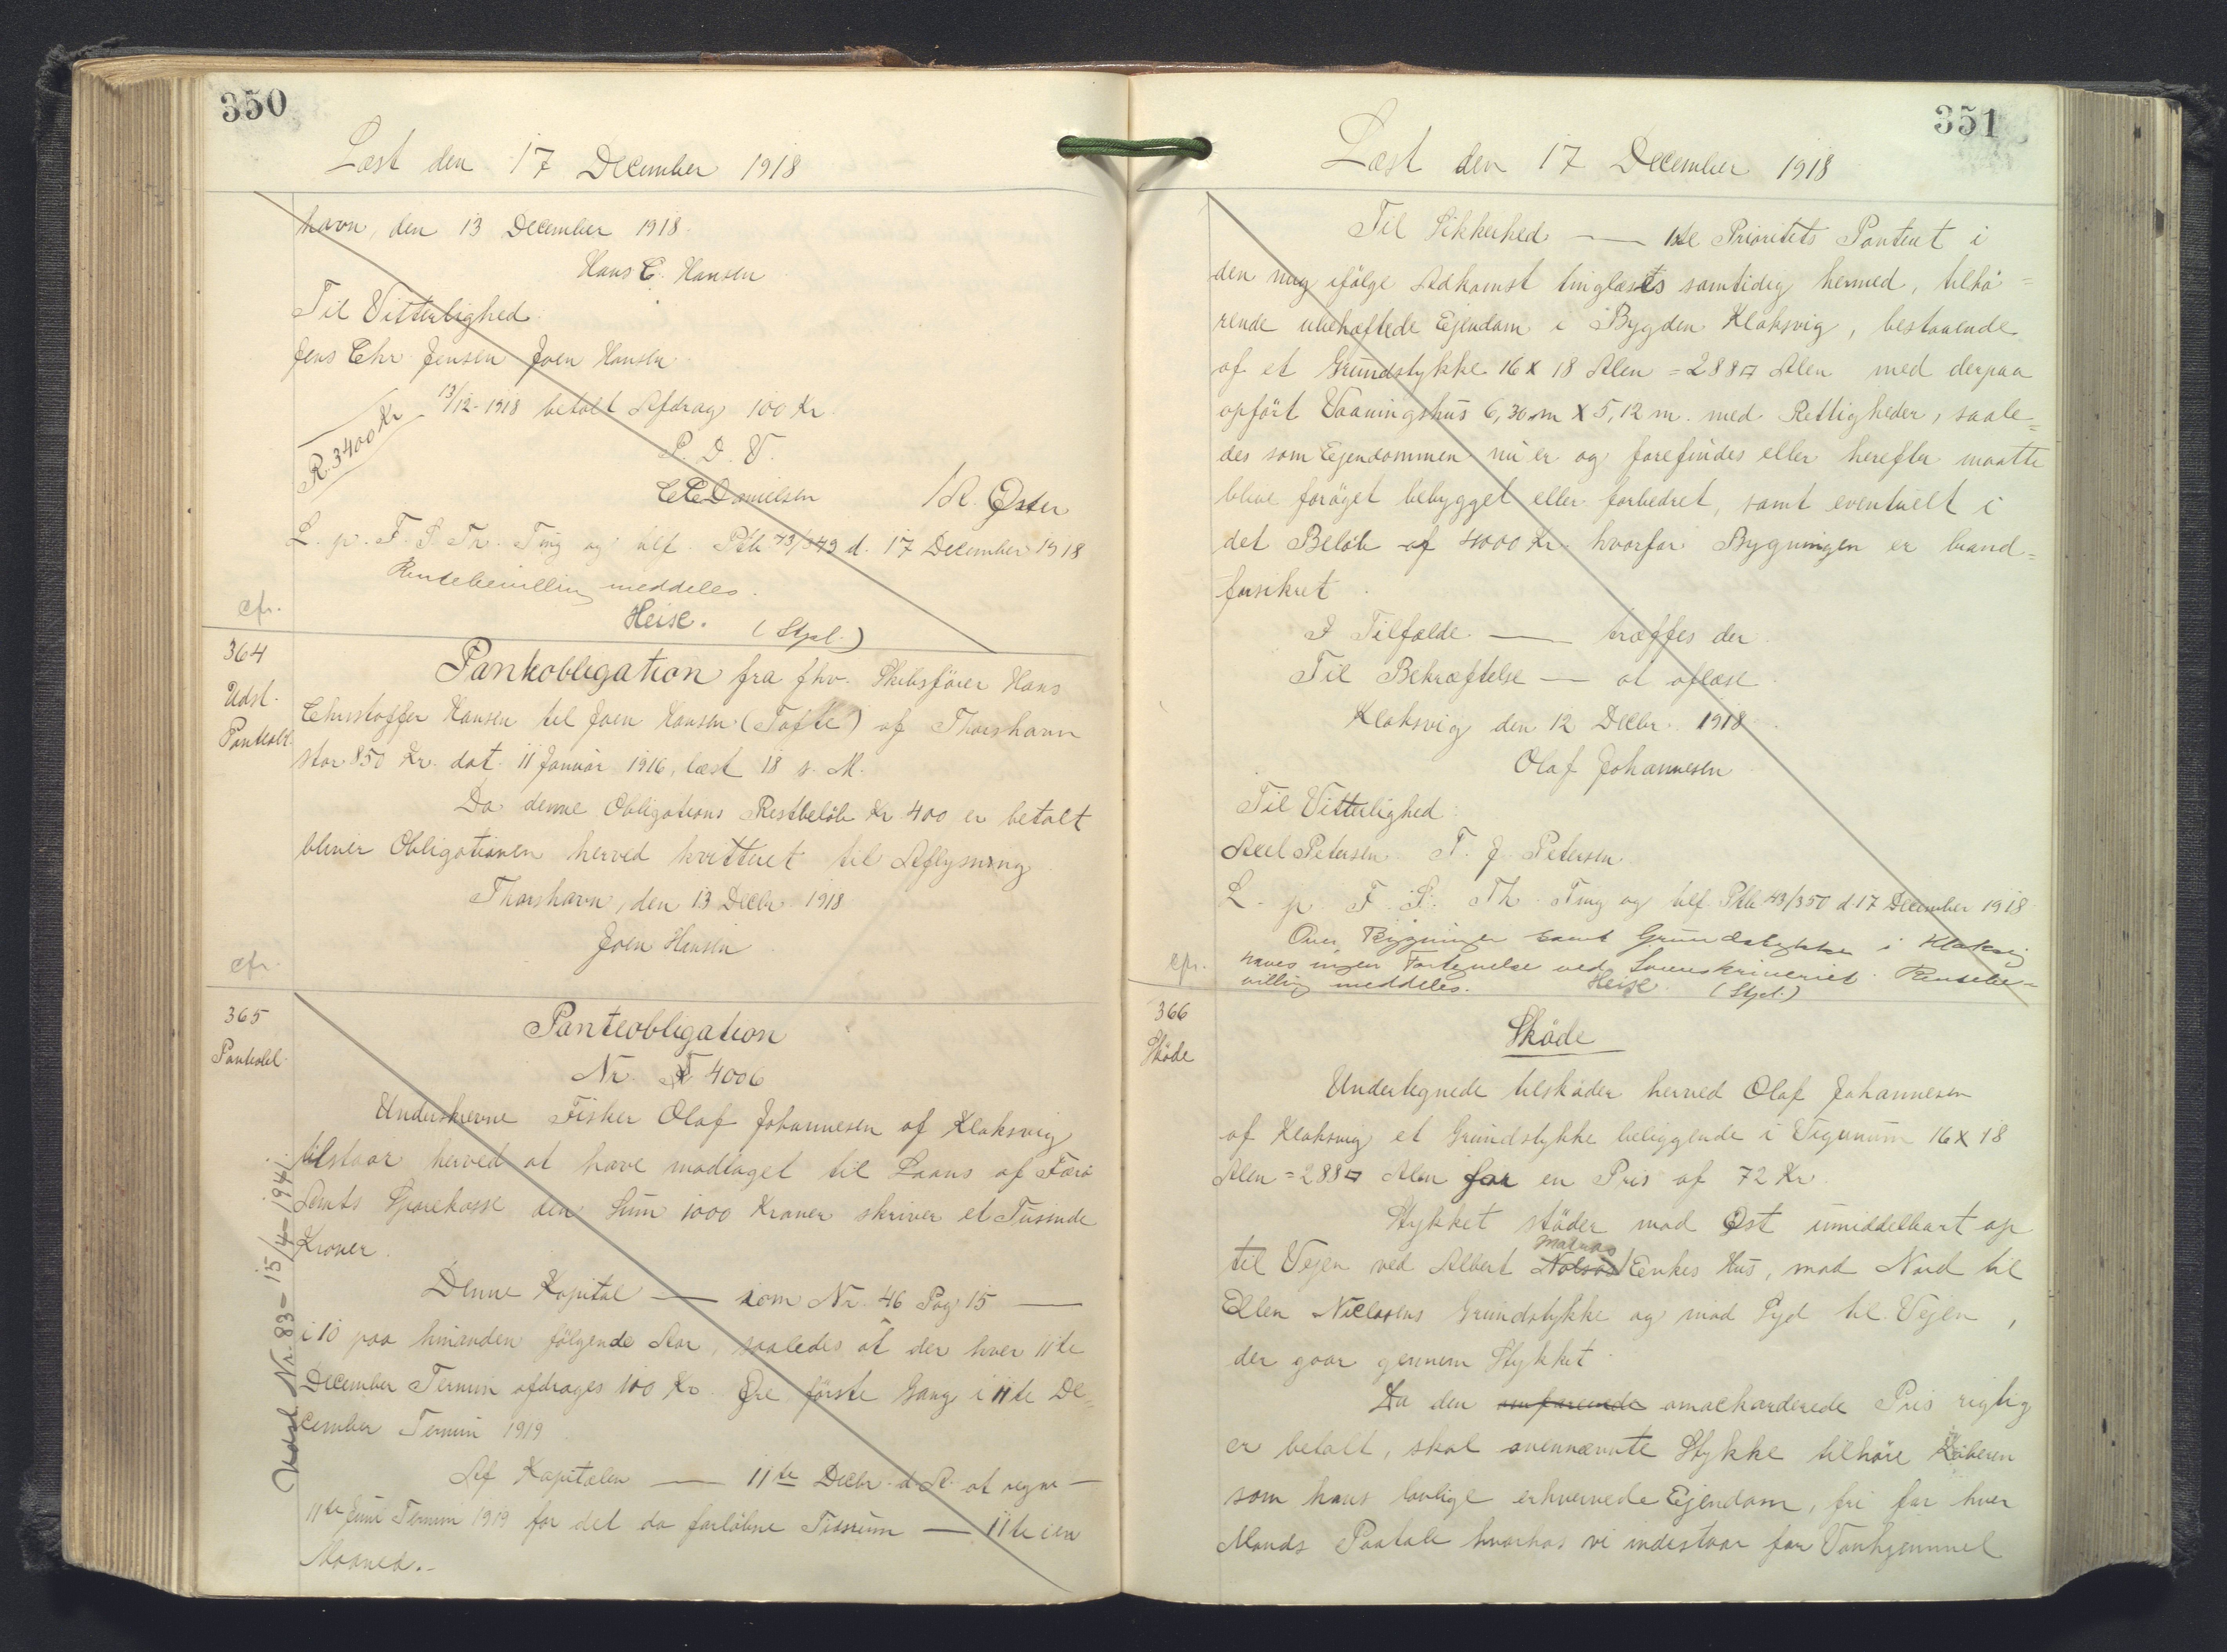 350
Læst den 17 December 1918
havn, den 13 December 1918.
Hans C. Hansen
Til Vitterlighed.
Jens Chr. Jensen Joen Hansen
R. 3400 Kr - 13/12-1918 betalt Afdrag 100 Kr.
P. D. V.
C C Danielsen / R. Øster
L. p. F. S. Th. Ting og tilf. Ptb 43/349 d. 17 December 1918
Rentebevilling meddeles.
cfr.
Heise. (Stpl.)
364
Udsl.
Panteobl.
Panteobligation fra fhv. Skibsfører Hans
Christoffer Hansen til Joen Hansen (Tofte) af Thorshavn
stor 850 Kr. dat. 11 Januar 1916, læst 18 s. M.
Da denne Obligations Restbeløb Kr 400 er betalt
bliver Obligationen herved kvitteret til Aflysning
Thorshavn, den 13 Decbr. 1918
Joen Hansen
cfr.
365
Panteobl.
Panteobligation
Nr. F 4006
Underskrevne Fisker Olaf Johannesen af Klaksvig
tilstaar herved at have modtaget til Laans af Færø
Amts Sparekasse den Sum 1000 Kroner skriver et Tusinde
Kroner.
Denne Kapital — som Nr. 46 Pag 15 —
i 10 paa hinanden følgende Aar, saaledes at der hver 11te
December Termin afdrages 100 Kr. Øre første Gang i 11te De=
cember Termin 1919
Af Kapitalen — 11te Decbr. d. A. at regne —
11te Juni Termin 1919 for det da forløbne Tidsrum — 11te i en
Maaned.-
Udsl. Nr. 83 - 15/4-1941
351
Læst den 17 December 1918
Til Sikkerhed — 1ste Prioritets Panteret i
den mig ifølge Adkomst tinglæstes samtidig hermed, tilhø=
rende ubehæftede Ejendom i Bygden Klaksvig, bestaaende
af et Grundstykke 16 x 18 Alen = 288 □ Alen med derpaa
opført Vaaningshus 6,30 m x 5,12 m. med Rettigheder, saale=
des som Ejendommen nu er og forefindes eller herefter maatte
blive forøget bebygget eller forbedret, samt eventuelt i
det Beløb af 4000 Kr. hvorfor Bygningen er brand=
forsikret.
I Tilfælde — træffes der.
Til Bekræftelse — at aflæse
Klaksvig den 12 Decbr. 1918
Olaf Johannesen
Til Vitterlighed:
Axel Petersen T. J. Petersen
L. p. F. S. Th. Ting og tilf. Ptb 43/350 d. 17 December 1918
Over Bygninger samt Grundstykke i Klaksvig
haves ingen Fortegnelse ved Sorenskriveriet. Rentebe=
cfr.
villing meddeles. Heise. (Stpl.)
366
Skøde
Skøde
Undertegnede tilskøder herved Olaf Johannesen
af Klaksvig et Grundstykke beliggende i Vigunum 16 x 18
Alen = 288 □ Alen for en Pris af 72 Kr.
Stykket støder mod Øst umiddelbart op
til Vejen ved Albert Enkes Hus, mod Nord til
Ellen Niclasens Grundstykke og mod Syd til Vejen,
der gaar gennem Stykket.
Da den omakkorderede Pris rigtig
er betalt, skal ovennævnte Stykke tilhøre Køberen
som hans lovlige erhvervede Ejendom, fri for hver
Mands Paatale hvorhos vi indestaar for Vanhjemmel